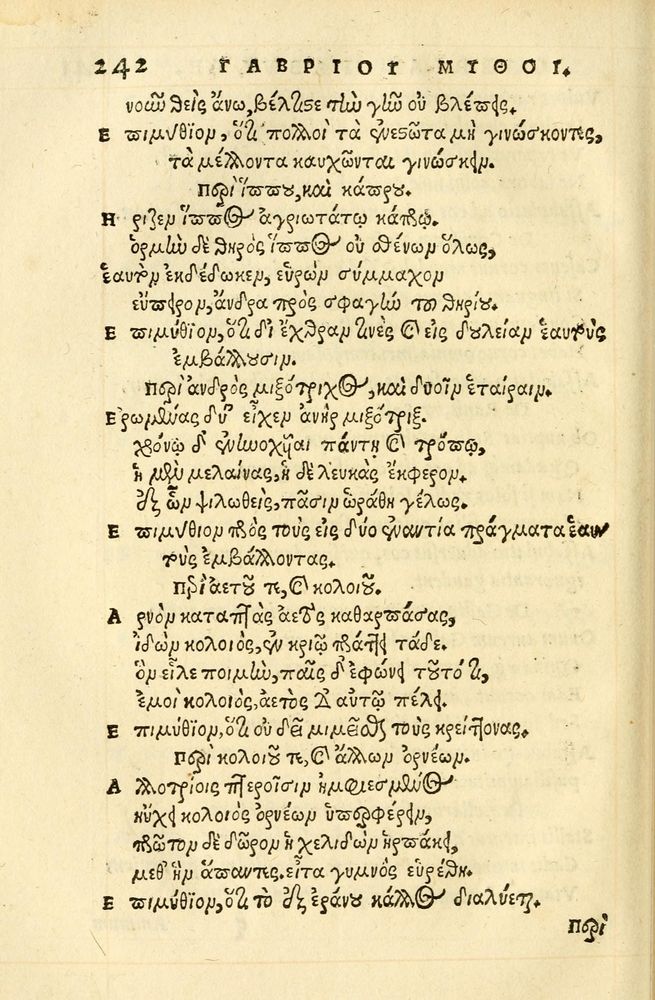 242 ΓΑΒΡΙΟΥ ΜΥΘΟΙ.
νοσῶ θεὶς ἄνω, βέλτιστε τὴν γῆν οὐ βλέπεις.
Ε πιμύθιον, ὅτι πολλοὶ τὰ ἐνεστῶτα μὴ γινώσκοντες,
τὰ μέλλοντα καυχῶνται γινώσκειν.
Περὶ ἵππου, καὶ κάπρου.
Η ριζεν ἵππος ἀγριωτάτῳ κάπρῳ.
ὁρμὴν δὲ θηρὸς ἵππος οὐ σθένων ὅλως,
ἑαυτὸν ἐκδέδωκεν, εὑρὼν σύμμαχον
εὔπειρον, ἄνδρα πρὸς σφαγὴν τοῦ θηρίου.
Ε πιμύθιον, ὅτι δι' ἔχθραν τινὲς καὶ εἰς δουλείαν ἑαυτοὺς
ἐμβάλλουσιν.
Περὶ ἀνδρὸς μιξότριχος, καὶ δυοῖν ἑταίραιν.
Ε ρωμένας δύ' εἶχεν ἀνὴρ μιξότριξ.
χρόνῳ δ' ἐνωχεῖται πάντη καὶ τρόπῳ,
ἡ μὲν μελαίνας, ἡ δὲ λευκὰς ἐκφέρον.
ἐξ ὧν ψιλωθεὶς, πᾶσιν ὡράθη γέλως.
Ε πιμύθιον πρὸς τοὺς εἰς δύο ἐναντία πράγματα ἑαυ
τοὺς ἐμβάλλοντας.
Περὶ ἀετοῦ τε, καὶ κολοιοῦ.
Α ρνὸν καταπτὰς ἀετὸς καθαρπάσας,
ἰδὼν κολοιὸς, ἐν κριῷ πράττει τάδε.
ὃν εἷλε ποιμὴν, παῖς δ' ἐφώνει τοῦτό τι,
ἐμοὶ κολοιὸς, ἀετὸς δ' αὑτῷ πέλει.
Ε πιμύθιον, ὅτι οὐ δεῖ μιμεῖσθαι τοὺς κρείττονας.
Περὶ κολοιοῦ τε, καὶ ἄλλων ὀρνέων.
Α λλοτρίοις πτεροῖσιν ἠμφιεσμένος
ηὔχει κολοιὸς ὀρνέων ὑπερφέρειν,
πρῶτον δὲ δῶρον ἡ χελιδὼν ἥρπακει,
μεθ' ἣν ἅπαντες. εἶτα γυμνὸς εὑρέθη.
Ε πιμύθιον, ὅτι τὸ ἐξ ἐράνου κάλλος διαλύεται.
Περὶ